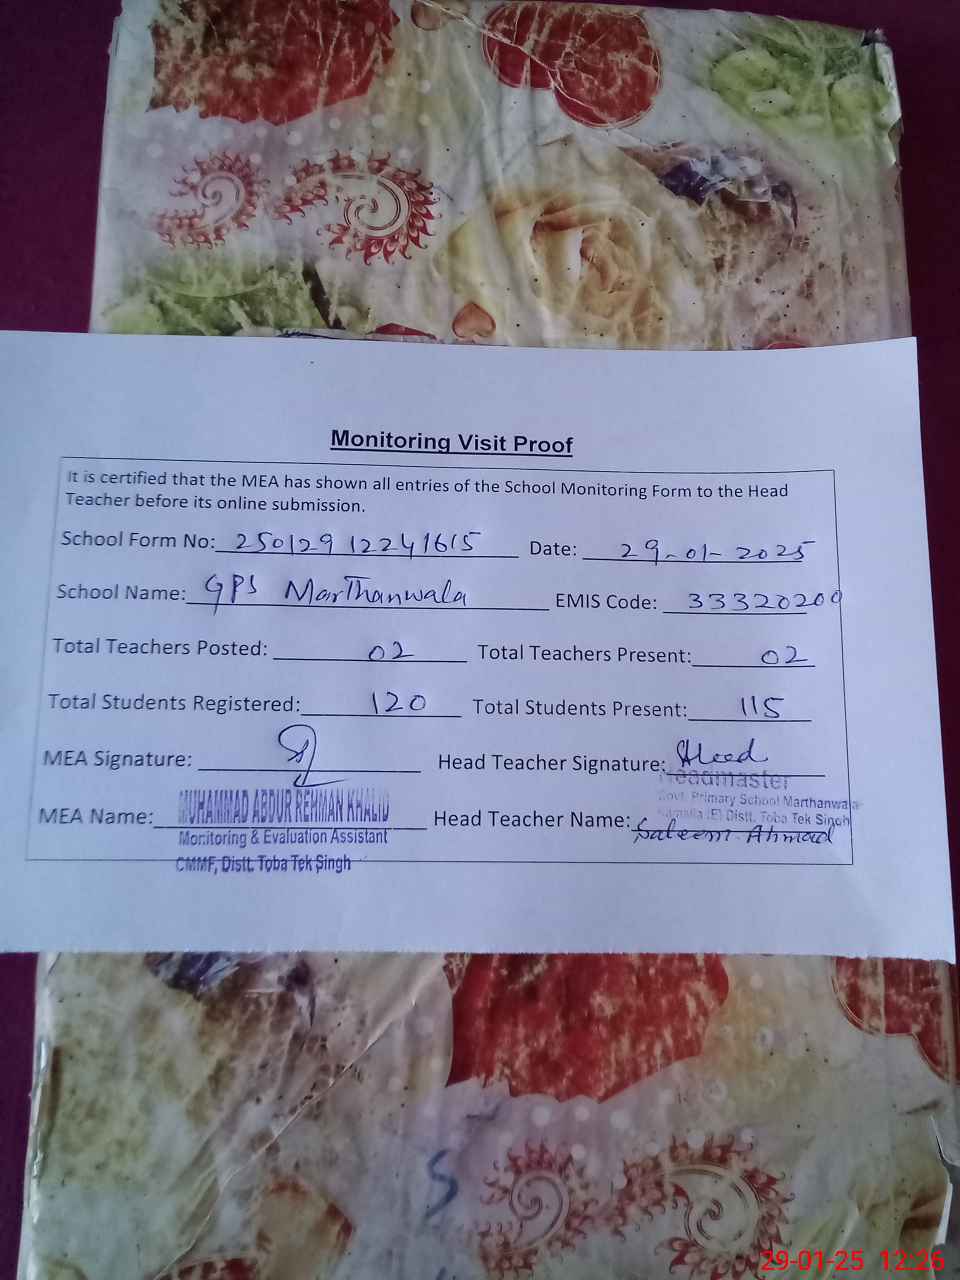 Monitoring Visit Proof
It is certified that the MEA has shown all entries of the School Monitoring Form to the Head
Teacher before its online submission.
School Form No: 25012912241615 Date: 29-01-2025
School Name: GPS Marthanwala EMIS Code: 33320200
Total Teachers Posted: 02 Total Teachers Present: 02
Total Students Registered: 120 Total Students Present: 115
MEA Signature: Head Teacher Signature:
Headmaster
Govt. Primary School Marthanwala
Kamalia (E) Distt. Toba Tek Singh
MEA Name: MUHAMMAD ABDUR REHMAN KHALID Head Teacher Name: Saleem Ahmad
Monitoring & Evaluation Assistant
CMMF, Distt. Toba Tek Singh
5
29-01-25 12:26